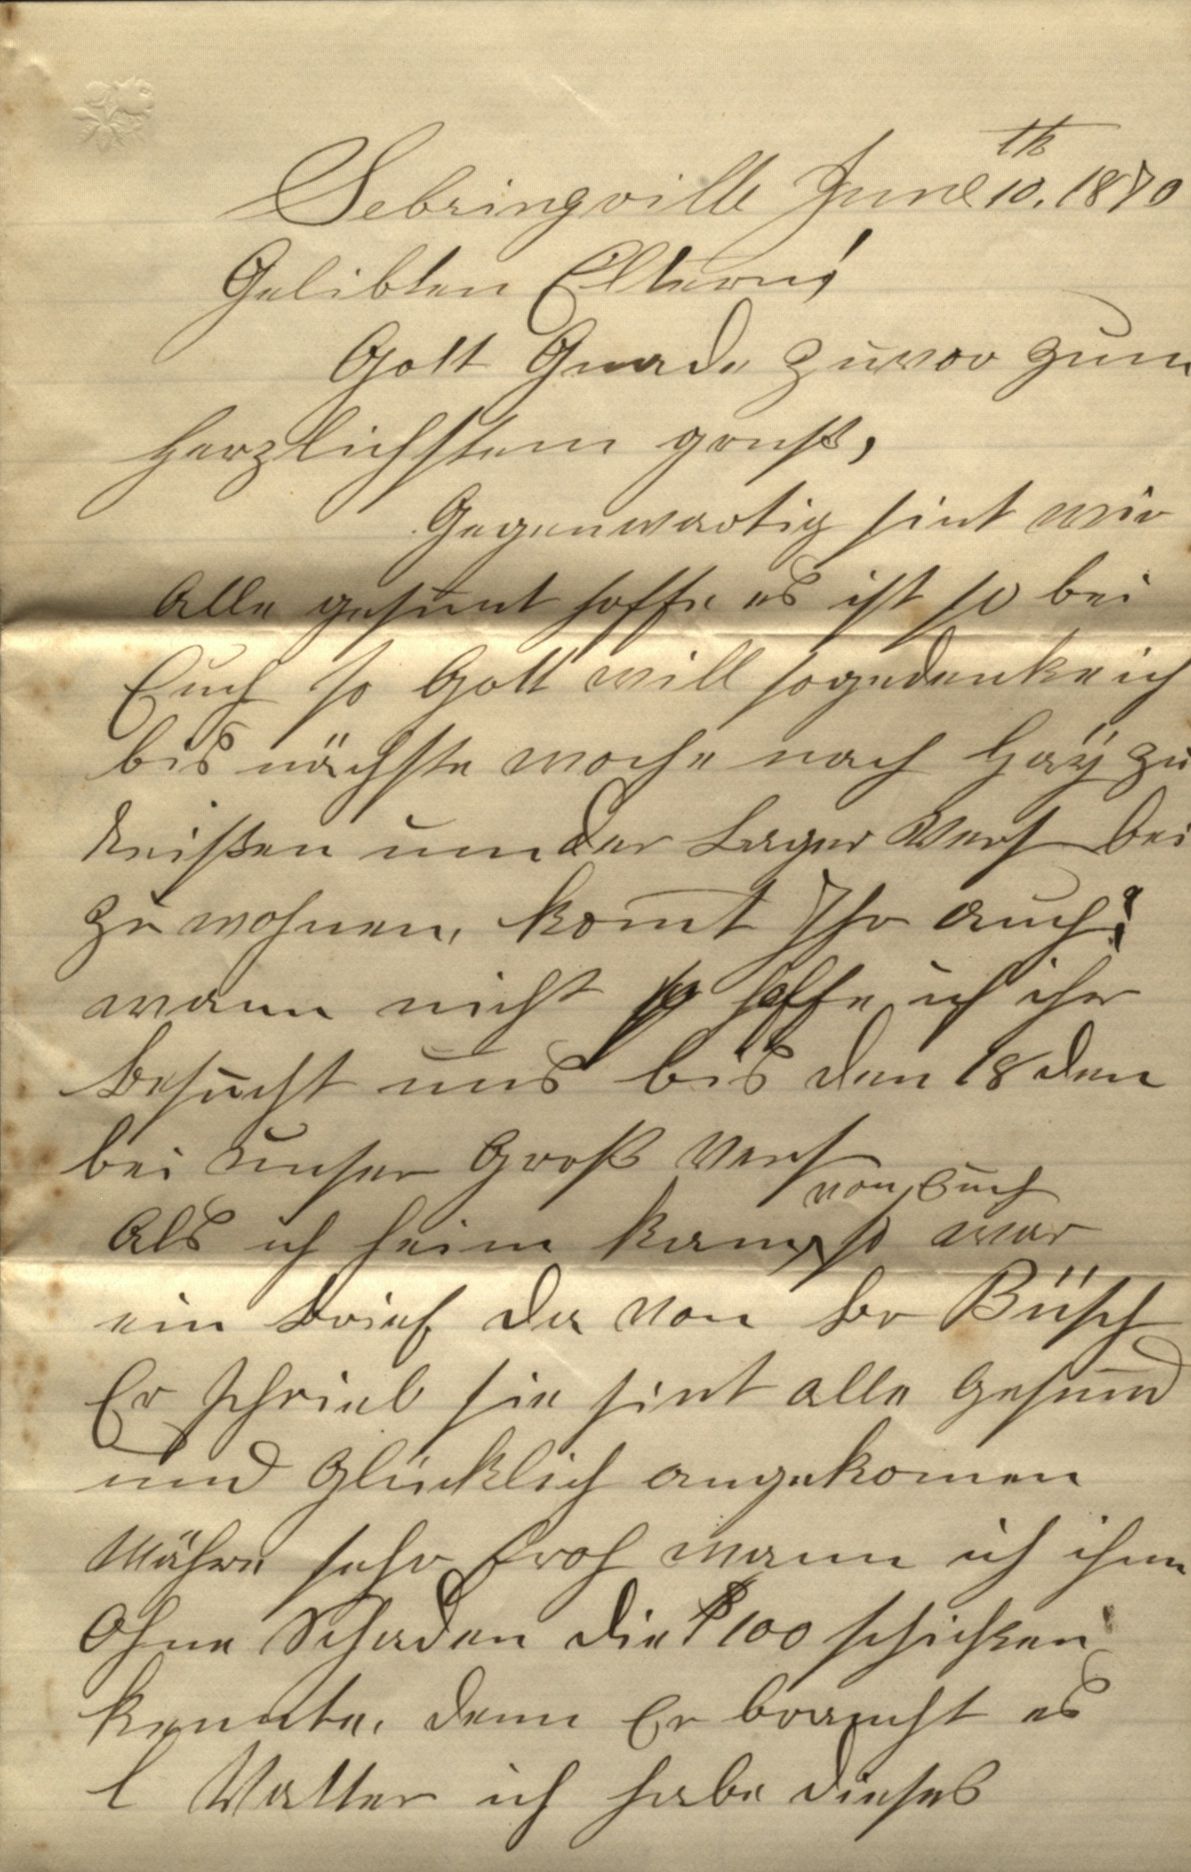 Sebringville June 10.th 1870
Gelibten Eltern!
Gott Gnade zuvor zum
herzlichstem gruß,
Gegenwartig sint wir
Alle gesunt hoffe es ist so bei
Euch so Gott will so gedenke ich
bis nächste woche nach Haÿ zu
Reißen um der Lager Vers bei
zu wohnen, komt Ihr auch?
wann nicht so hoffe ich ihr
Besucht uns bis den 18 den
bei Unser Groß Vers
von Euch
Als ich heim kam so war
ein Brief da von Br Büsch
Er schrieb sie sint alle Gesund
und Glücklich angekomen
Währe sehr froh wann ich ihm
Ohne Schaden die $100 schicken
kennte. denn Er braucht es
l Vatter ich habe dieses